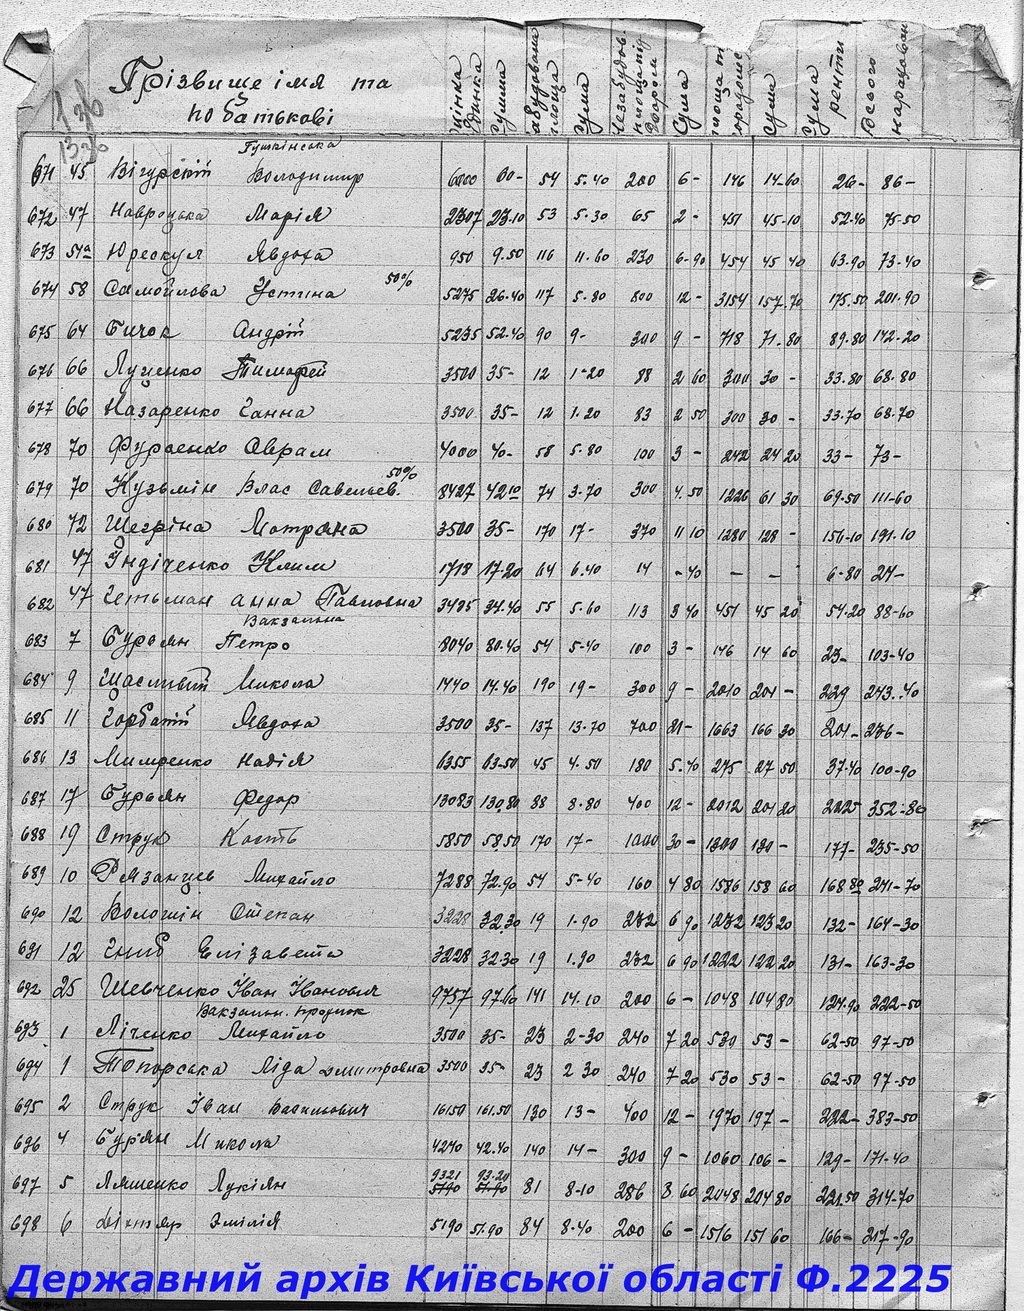 Прізвище імя та
по батькові
Оцінка будинка
Сумма
Забудована площа
Сума
Незабудов. площа під двором
Сума
площа під городом
Сума
Сума ренти
Всього нараховано
136
1336
Пушкінська
671 45 Вігурскій Володимир 6000 60- 54 5.40 200 6- 146 14-60 26- 86-
672 47 Навроцька Марія 2307 23.10 53 5.30 65 2- 451 45-10 52.40 75-50
673 51а Юрескул Явдоха 950 9.50 116 11.60 230 6-90 454 45 40 63.90 73-40
674 58 Самойлова Устина 50% 5275 26.40 117 5.80 800 12- 3154 157.70 175.50 201.90
675 64 Бичок Андрій 5235 52.40 90 9- 300 9- 718 71.80 89.80 142-20
676 66 Луценко Тимофей 3500 35- 12 1-20 88 2 60 300 30- 33.80 68.80
677 66 Назаренко Ганна 3500 35- 12 1.20 83 2 50 300 30- 33.70 68.70
678 70 Фурсенко Оврам 4000 40- 58 5.80 100 3- 242 24 20 33- 73-
679 70 Кузьмін Влас Савельев. 50% 8427 42 10 74 3.70 300 4.50 1226 61 30 69.50 111-60
680 72 Шегріна Мотрона 3500 35- 170 17- 370 11 10 1280 128- 156-10 191.10
681 47 Індіченко Клим 1718 17.20 64 6.40 14 -40 - - 6-80 24-
682 47 Гетьман Анна Павловна 3435 34.40 55 5.60 113 3 40 451 45 20 54.20 88-60
Вакзальна
683 7 Бурьян Петро 8040 80.40 54 5-40 100 3- 146 14 60 23- 103-40
684 9 Щасливий Микола 1440 14.40 190 19- 300 9- 2010 201- 229 243.40
685 11 Горбатій Явдоха 3500 35- 137 13.70 700 21- 1663 166 30 201- 236-
686 13 Мимренко Надія 6355 63-50 45 4.50 180 5.40 275 27 50 37.40 100-90
687 17 Бурьян Федор 13083 130.80 88 8.80 400 12- 2012 201 20 222- 352-80
688 19 Струк Кость 5850 58.50 170 17- 1000 30- 1300 130- 177- 235-50
689 10 Рязанцев Михайло 7288 72.90 54 5-40 160 4 80 1586 158 60 168 80 241-70
690 12 Волошін Степан 3228 32.30 19 1.90 232 6 90 1232 123 20 132- 164-30
691 12 Гниб Елізавета 3228 32.30 19 1.90 232 6 90 1222 122 20 131- 163-30
692 25 Шевченко Іван Іванович 9757 97.60 141 14.10 200 6- 1048 104 80 124.90 222-50
Вакзальн. провулок
693 1 Ліченко Михайло 3500 35- 23 2-30 240 7 20 530 53- 62-50 97-50
694 1 Топорська Ліда Дмитровна 3500 35- 23 2 30 240 7 20 530 53- 62-50 97-50
695 2 Струк Іван Василович 16150 161.50 130 13- 400 12- 1970 197- 222- 383-50
696 4 Бурян Микола 4240 42.40 140 14- 300 9- 1060 106- 129- 171.40
697 5 Ляшенко Лукіян 9321 93.20 5190 51.90 81 8-10 286 8 60 2048 204 80 221.50 314-70
698 6 Діхтяр Эмілія 5190 51.90 84 8.40 200 6- 1516 151 60 166- 217-90
Державний архів Київської області Ф.2225